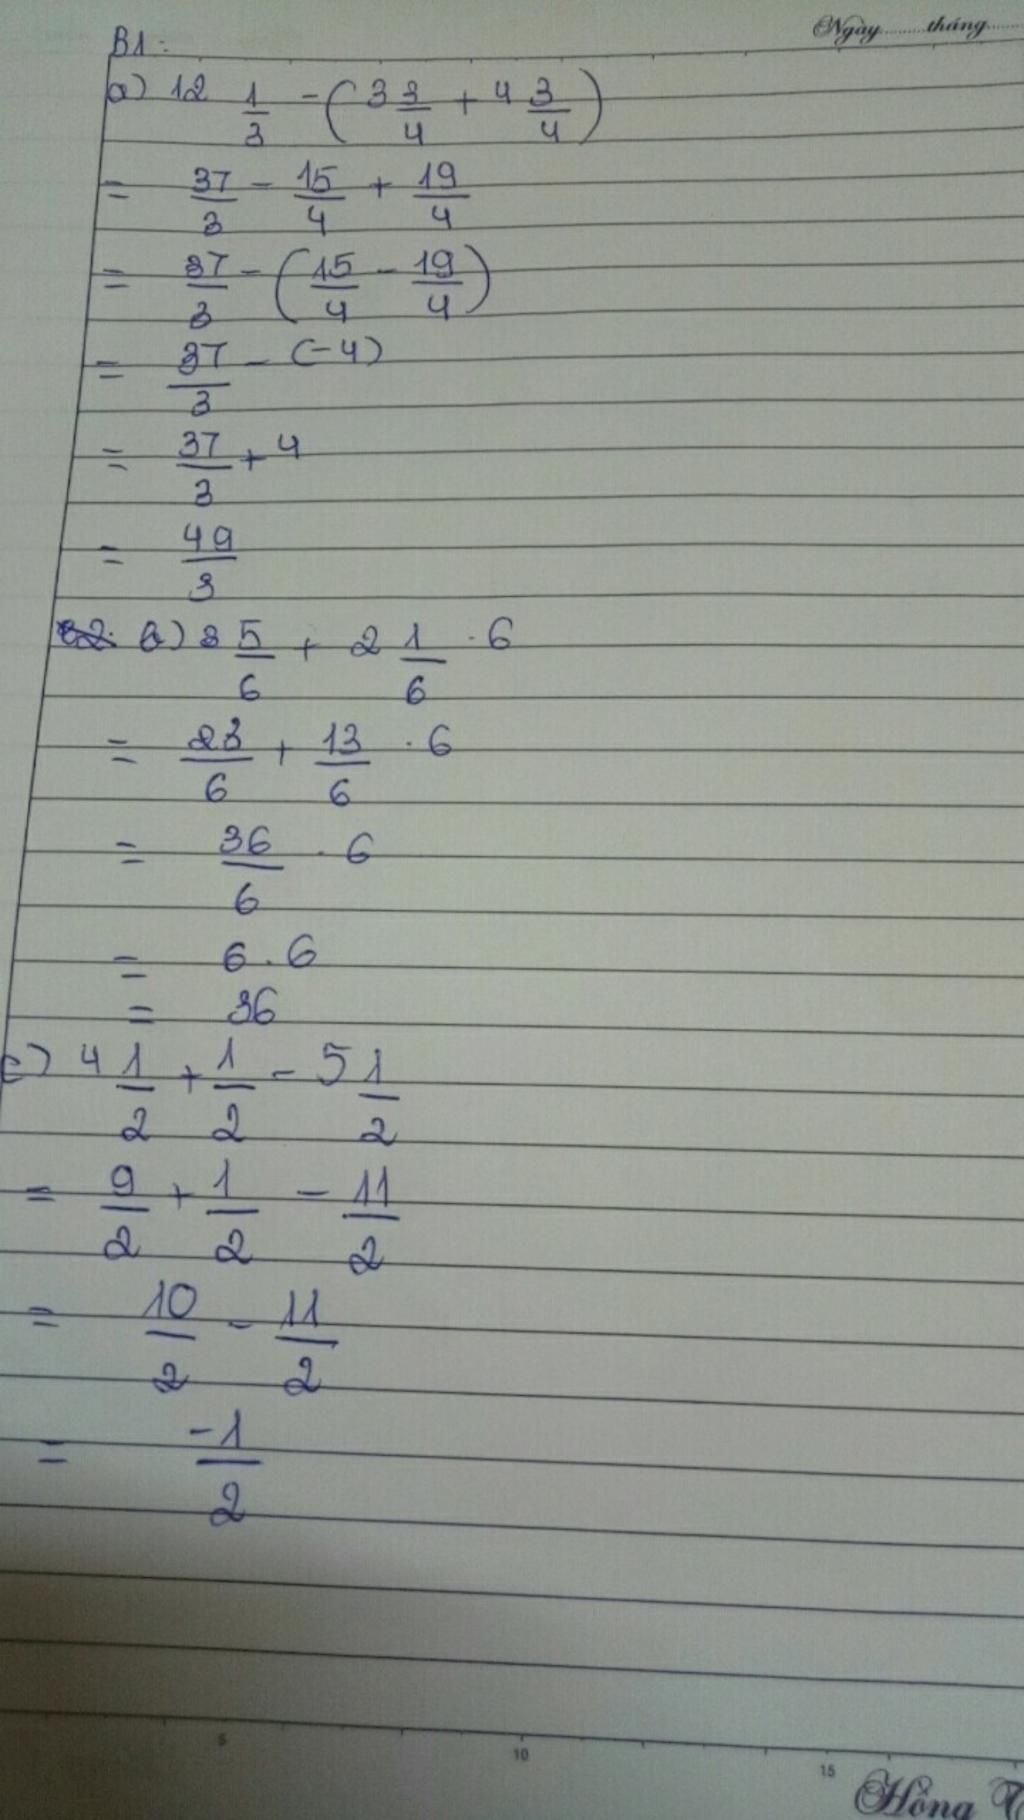 Ngày.........tháng........
B1:
a) 12 1/3 - (3 3/4 + 4 3/4)
= 37/3 - 15/4 + 19/4
= 37/3 - (15/4 - 19/4)
= 37/3 - (-4)
= 37/3 + 4
= 49/3
b) 3 5/6 + 2 1/6 . 6
= 23/6 + 13/6 . 6
= 36/6 . 6
= 6 . 6
= 36
c) 4 1/2 + 1/2 - 5 1/2
= 9/2 + 1/2 - 11/2
= 10/2 - 11/2
= -1/2
5 10 15
Hồng